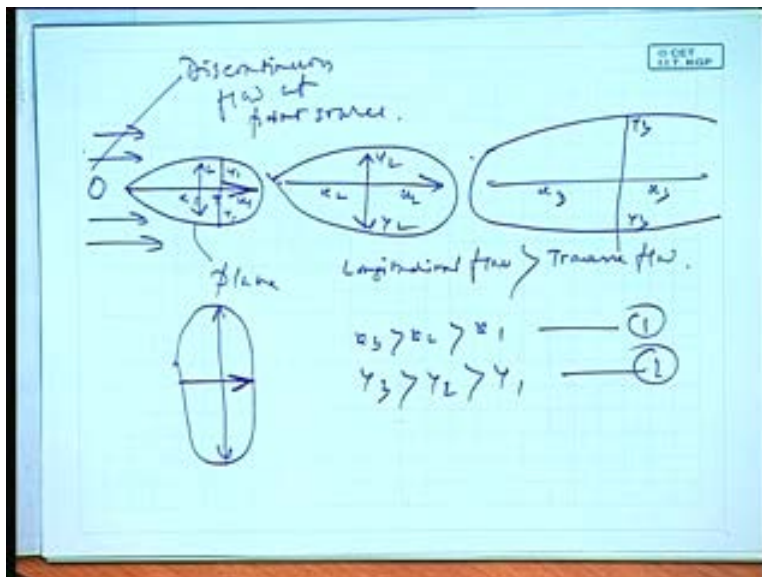 © CET
I.I.T. KGP
Discontinuous
flow at
point source.
O
Y1
x1
x1
Y1
Y2
x2
x2
Y2
Y3
x3
x3
Y3
plume
Longitudinal flow > Traverse flow.
x3 > x2 > x1 ——— 1
Y3 > Y2 > Y1 ——— 2